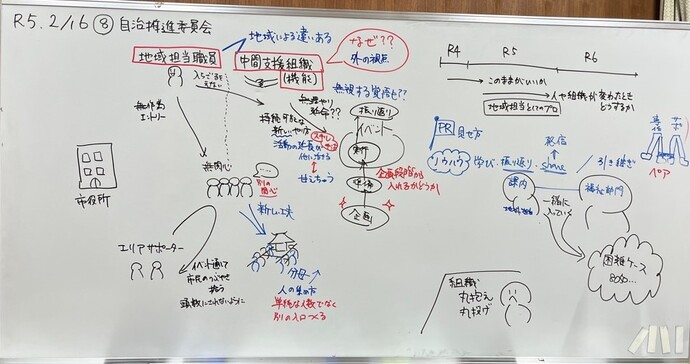 R5.2/16 ⑧ 自治推進委員会
地域担当職員
地域による違いある
中間支援組織
(機能)
なぜ??
外の視点
無関心
別の関心
市役所
エリアサポーター
イベント通じて
市民のつぶやき
拾う
頭数にされないように
新しい工夫
分母→
人の集め方
単純な人数でなく
別の入口つくる
持続可能な
新しいやり方
他に活きる
甘えちゃう
無視する覚悟も??
振り返り
イベント
準備
企画
企画段階から
入れるかどうか
R4
R5
R6
このままがいいか
人や組織が変わったとき
どうするか
地域担当としてのプロ
PR
見せ方
ノウハウ
学び・振り返り・share
発信
引き継ぎ
専任
ペア
課内
福祉部門
一緒に
入っていく
困難ケース
8050…
組織
丸抱え
丸投げ